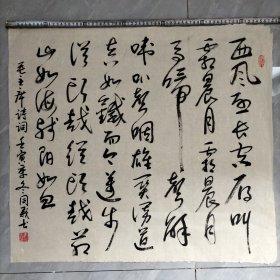 西风烈长空雁叫
霜晨月霜晨月
马蹄声碎
喇叭聲咽雄关漫道
真如鐵而今迈步
從頭越從頭越苍
山如海残阳如血
毛主席诗词 壬寅季冬